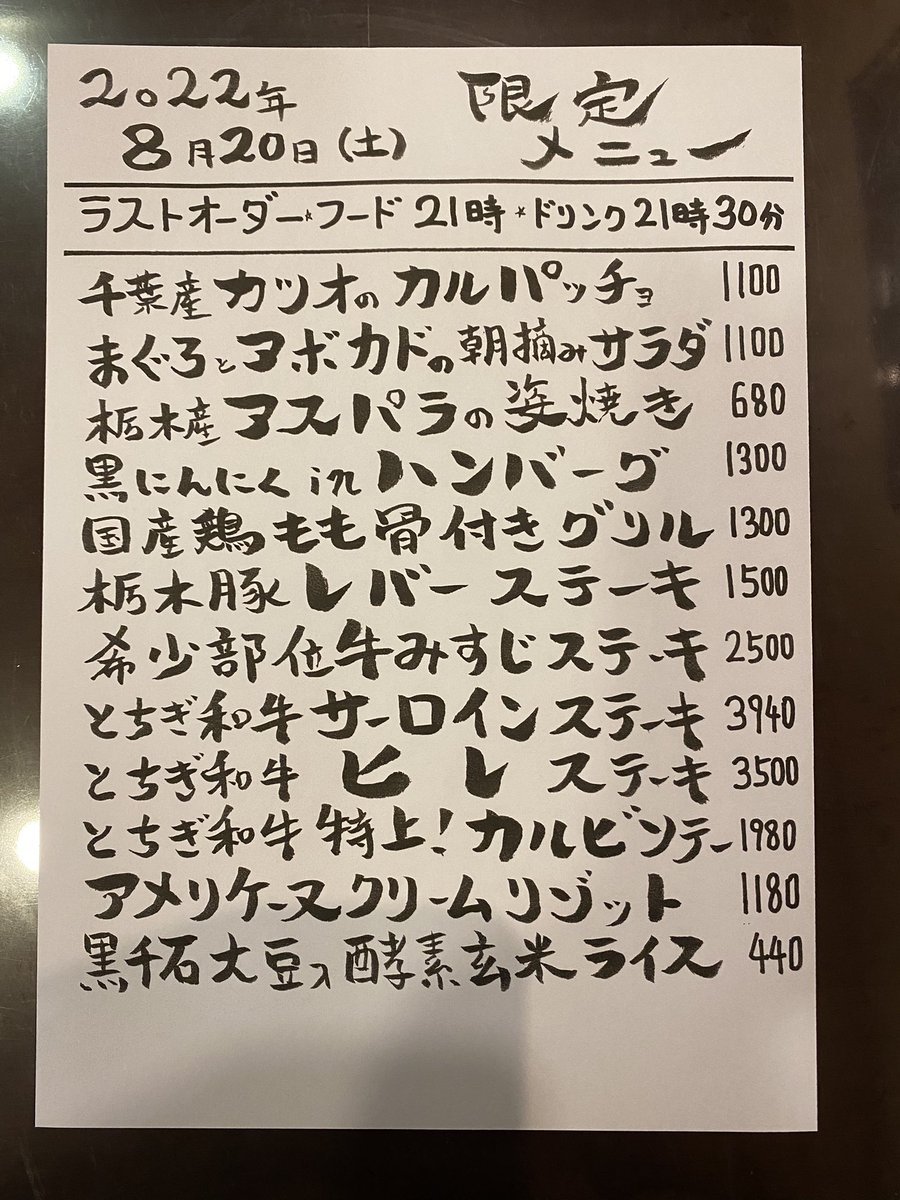 2022年 限定
8月20日(土) メニュー
ラストオーダー★フード21時★ドリンク21時30分
千葉産カツオのカルパッチョ 1100
まぐろとアボカドの朝摘みサラダ 1100
栃木産アスパラの姿焼き 680
黒にんにくinハンバーグ 1300
国産鶏もも骨付きグリル 1300
栃木豚レバーステーキ 1500
希少部位牛みすじステーキ 2500
とちぎ和牛サーロインステーキ 3940
とちぎ和牛ヒレステーキ 3500
とちぎ和牛特上!カルビソテー 1980
アメリケーヌクリームリゾット 1180
黒千石大豆入酵素玄米ライス 440